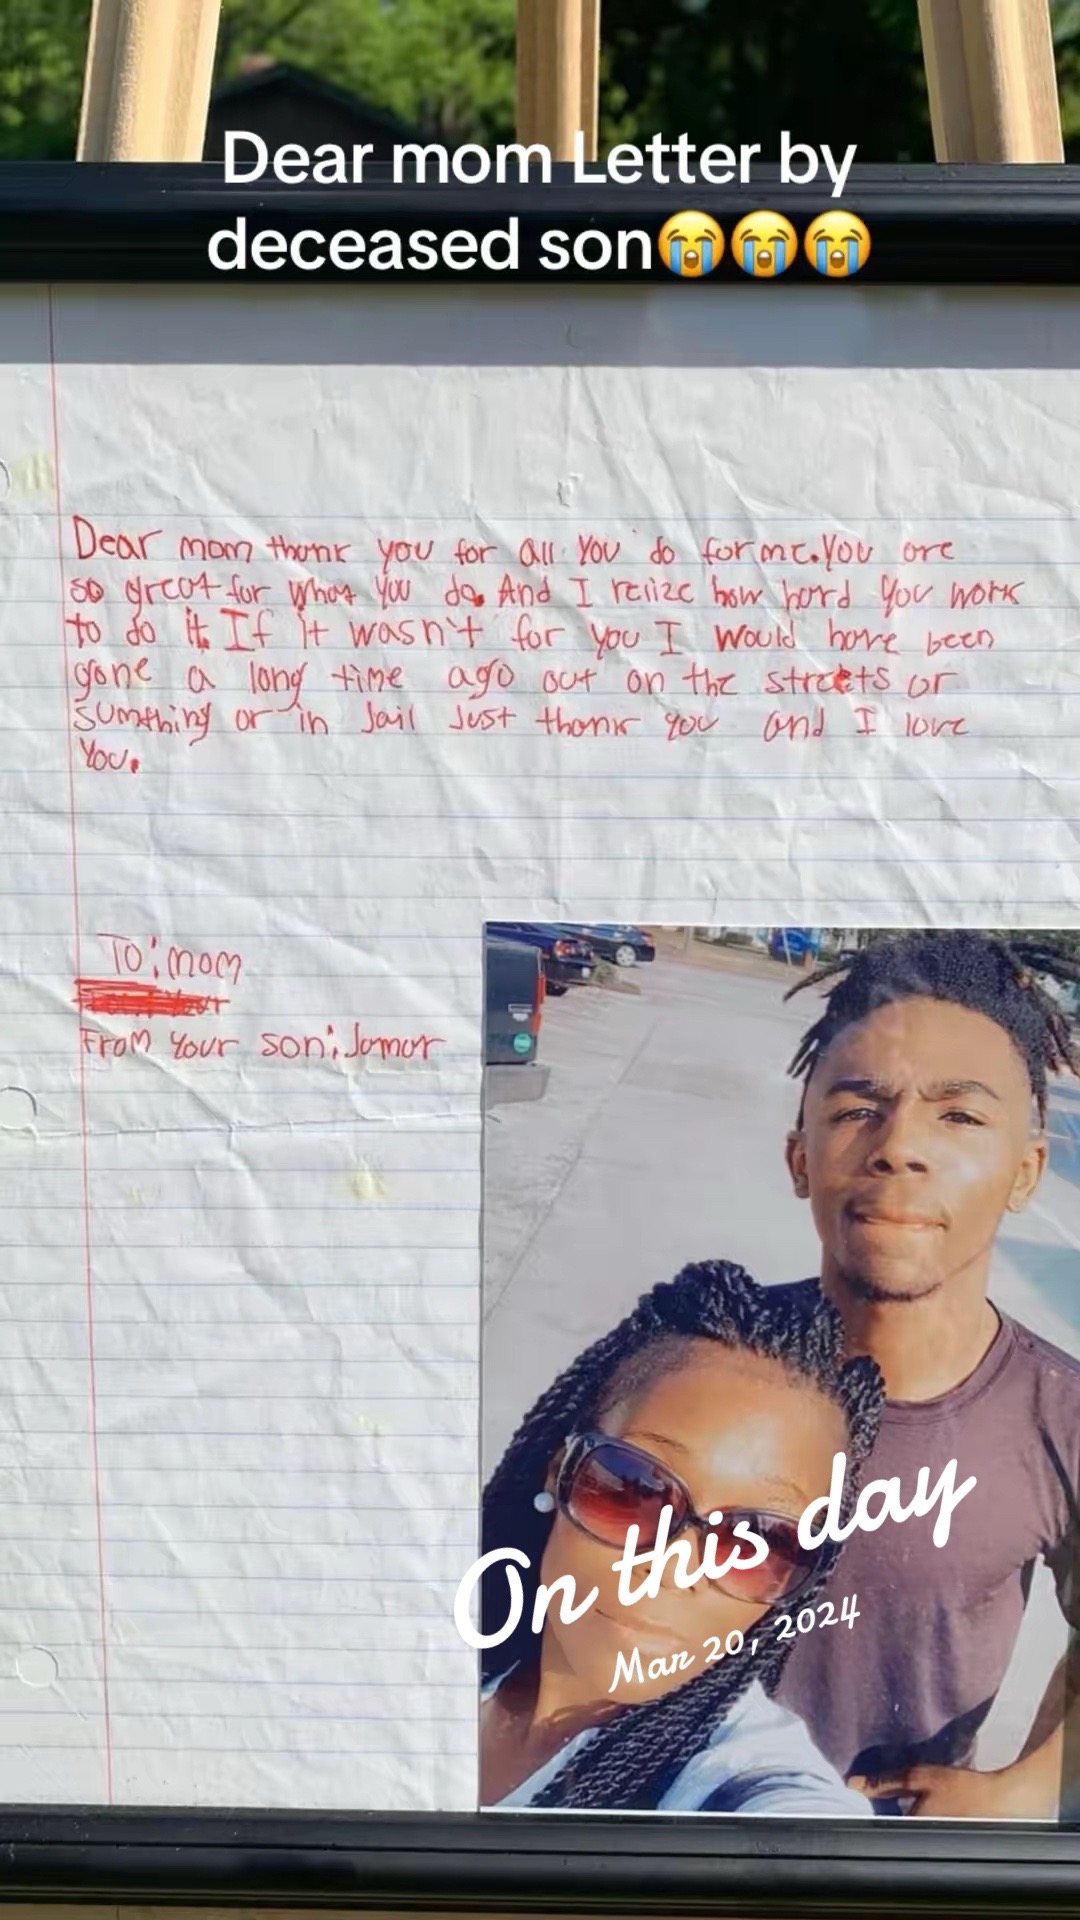 Dear mom Letter by
deceased son😭😭😭
Dear mom thank you for all you do for me. You are
so great for what you do. And I relize how hard you work
to do it. If it wasn't for you I would have been
gone a long time ago out on the streets or
sumthing or in Jail Just thank you and I love
You.
To: mom
From Your son: Jamar
On this day
Mar 20, 2024